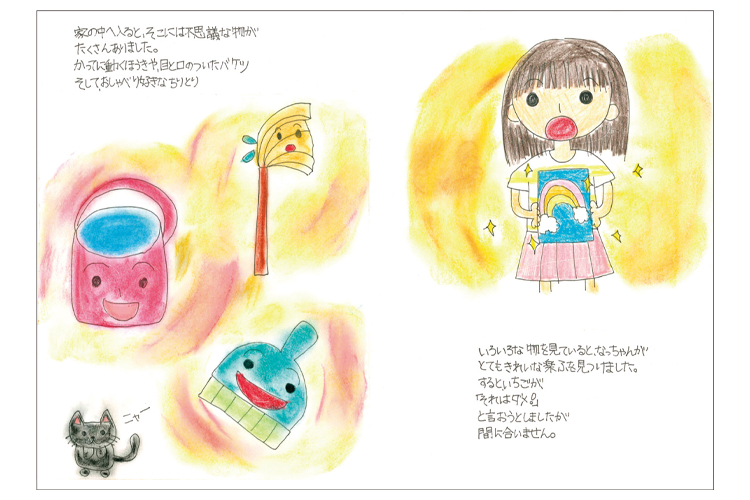 家の中へ入ると、そこには不思議な物が
たくさんありました。
かってに動くほうきや、目と口のついたバケツ
そして、おしゃべり好きなちりとり
ニャー
いろいろな物を見ていると、なっちゃんが
とてもきれいな楽ふを見つけました。
するといちごが
「それはダメ!!」
と言おうとしましたが
間に合いません。